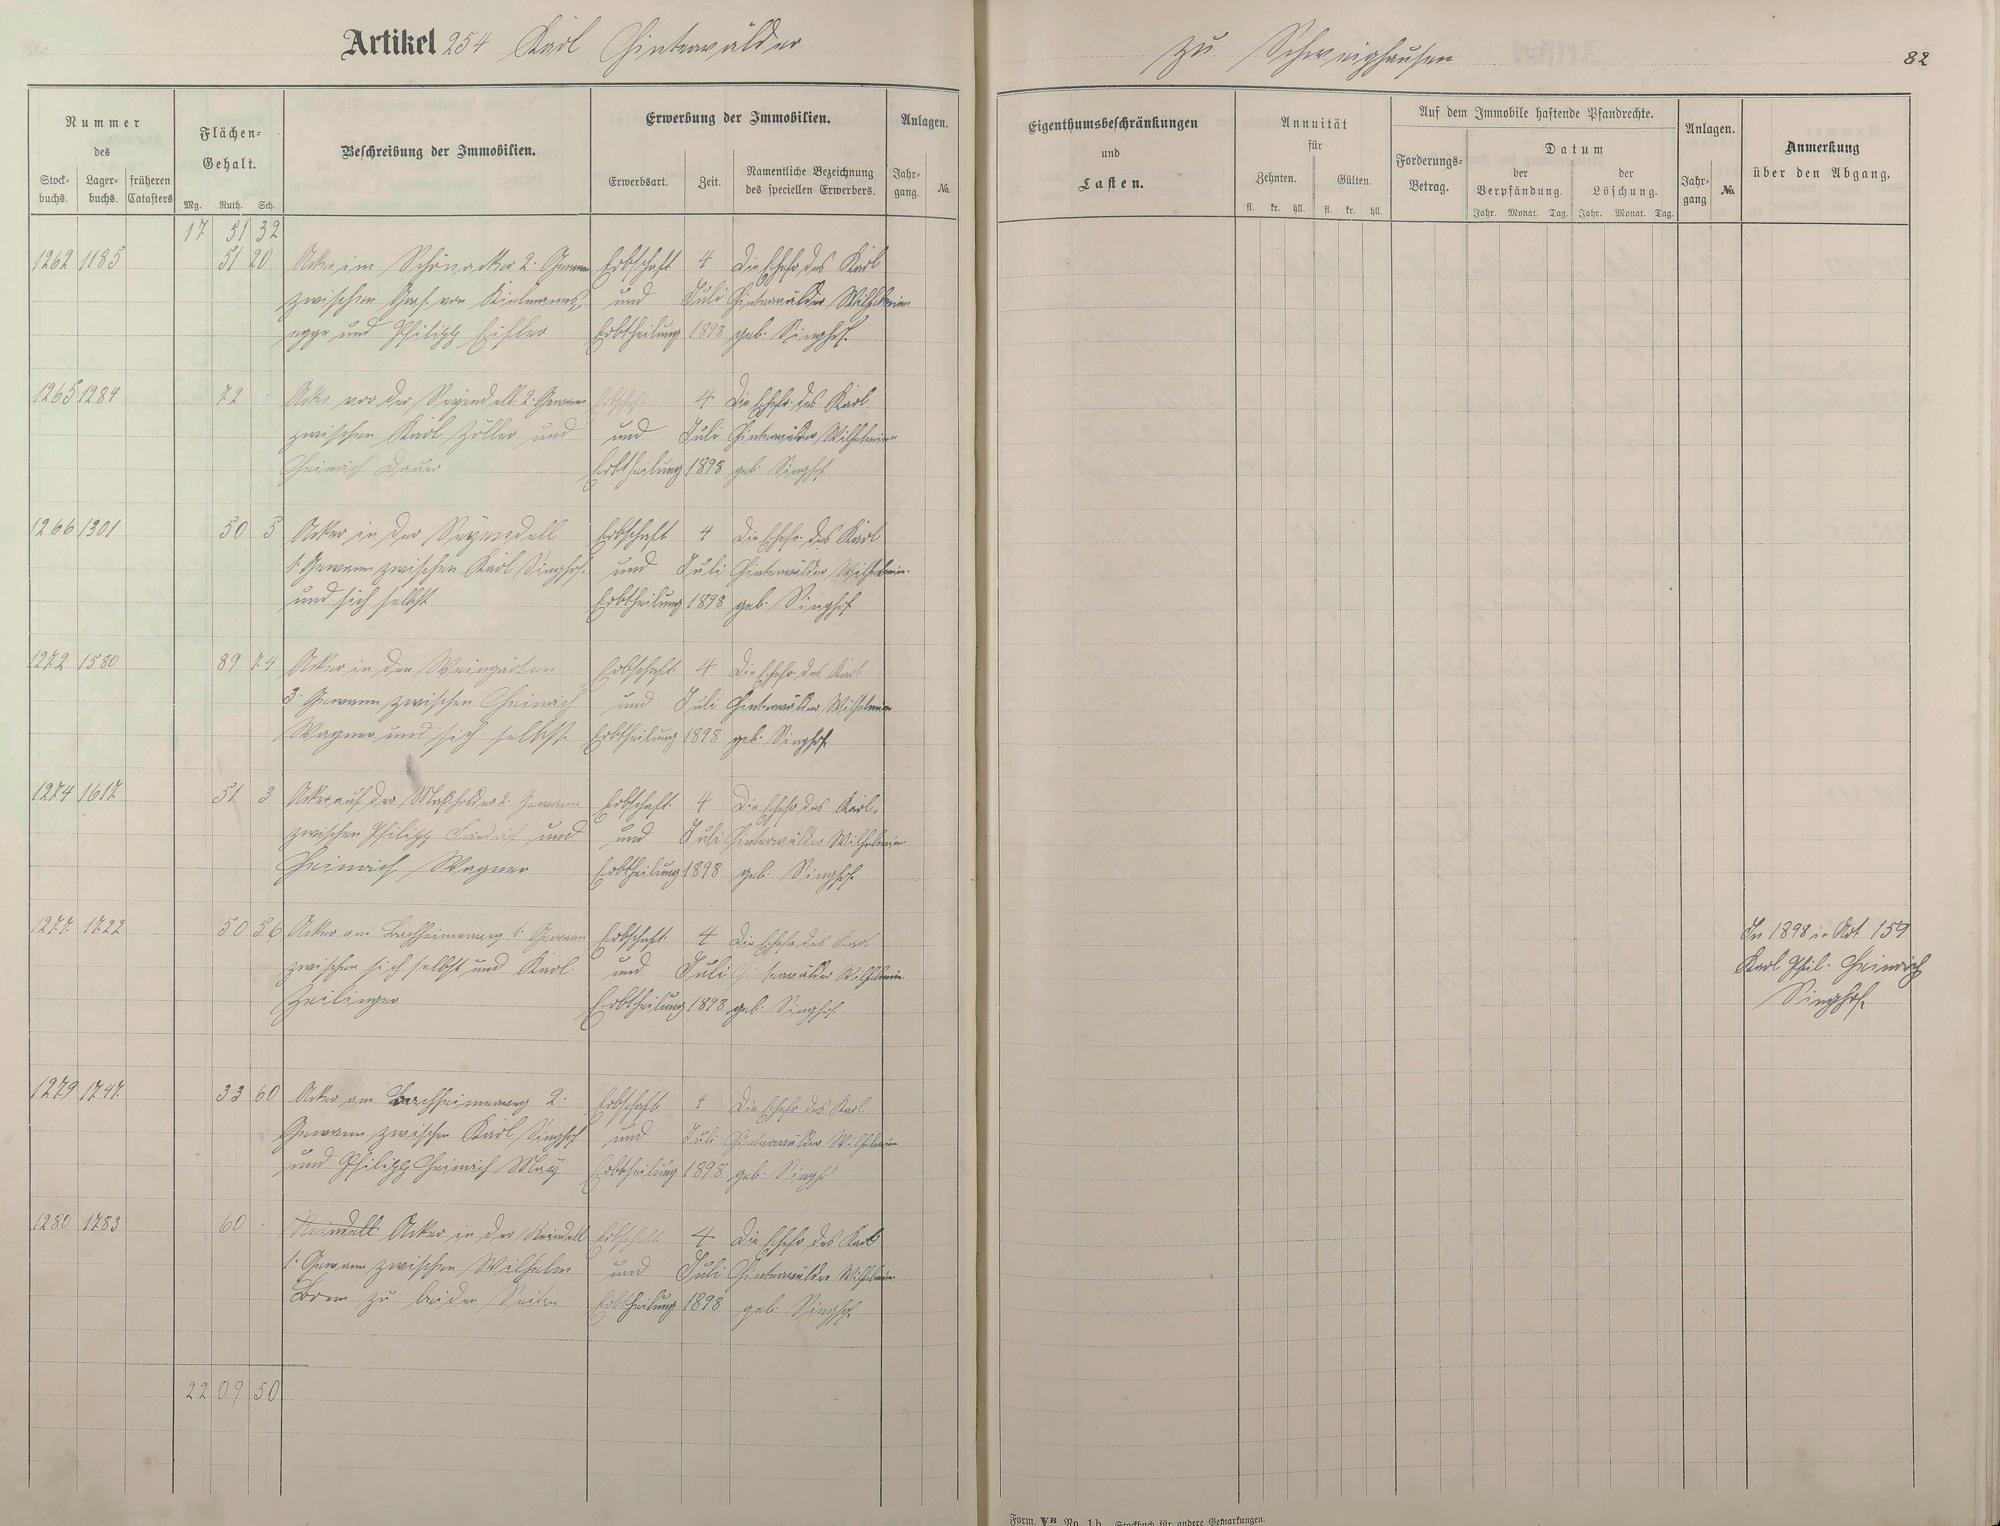 Artikel 254 Karl Hinterwälder
zu Schweighausen
82
Nummer
des
Stock-
buchs.
Lager-
buchs.
früheren
Catasters
Flächen-
Gehalt.
Mg. Ruth. Sch.
Beschreibung der Immobilien.
Erwerbung der Immobilien.
Erwerbsart. Zeit.
Namentliche Bezeichnung
des speciellen Erwerbers.
Anlagen.
Jahr-
gang. No.
Eigenthumsbeschränkungen
und
Lasten.
Annuität
für
Zehnten. Gülten.
fl. kr. hll. fl. kr. hll.
Auf dem Immobile haftende Pfandrechte.
Forderungs-
Betrag.
Datum
der
Verpfändung.
der
Löschung.
Jahr. Monat. Tag. Jahr. Monat. Tag.
Anlagen.
Jahr-
gang No.
Anmerkung
über den Abgang.
17 51 32
1262 1185 51 20 Acker im Schönacker 2. Gewann Erbschaft 4 Die Ehefr. des Karl
zwischen Graf von Kielmanns- und Juli Hinterwälder Wilhelmine
egge und Philipp Eisler Erbtheilung 1898 geb. Singhof.
1265 1284 72 · Acker vor der 2. Gewann Erbschaft 4 Die Ehefr. des Karl
zwischen Karl Zöller und und Juli Hinterwälder Wilhelmine
Heinrich Dauer Erbtheilung 1898 geb. Singhof
1266 1301 50 5 Acker in der Erbschaft 4 Die Ehefr. des Karl
1. Gewann zwischen Karl Singhof. und Juli Hinterwälder Wilhelmine
und sich selbst Erbtheilung 1898 geb. Singhof
1272 1580 89 74 Acker in den Weingärten Erbschaft 4 Die Ehefr. des Karl
3. Gewann zwischen Heinrich und Juli Hinterwälder Wilhelmine
Wagner und sich selbst Erbtheilung 1898 geb. Singhof
1274 1617 51 3 Acker auf der 2. Gewann Erbschaft 4 Die Ehefr. des Karl
zwischen Philipp und und Juli Hinterwälder Wilhelmine
Heinrich Wagner Erbtheilung 1898 geb. Singhof.
1277 1722 50 56 Acker am 1. Gewann Erbschaft 4 Die Ehefr. des Karl
In 1898 in Art 159
zwischen sich selbst und Karl und Juli Hinterwälder Wilhelmine
Karl Phil. Heinrich
Zeilinger Erbtheilung 1898 geb. Singhof
Singhof.
1279 1747 33 60 Acker am 2. Erbschaft 4 Die Ehefr. des Karl
Gewann zwischen Karl Singhof und Juli Hinterwälder Wilhelmine
und Philipp Heinrich May Erbtheilung 1898 geb. Singhof
1280 1783 60 · Acker in der Erbschaft 4 Die Ehefr. des Karl
1. Gewann zwischen Wilhelm und Juli Hinterwälder Wilhelmine
Born zu beiden Seiten Erbtheilung 1898 geb. Singhof
22 09 50
Form. VB No. 1b. Stockbuch für andere Gemarkungen.